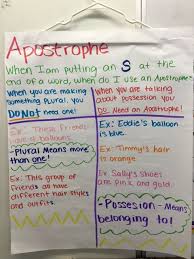 Apostrophe
When I am putting an S at the
end of a word, when do I use an Apostrophe?
When you are making
something Plural, you
DO Not need one!
Ex: These Friends
balloons.
Plural Means more
than one!
Ex: This group of
Friends all have
different hair styles
and outfits.
When you are talking
about possession You
do Need an Apostrophe!
Ex: Eddie's balloon
is blue.
Ex: Timmy's hair
is orange.
Ex: Sally's Shoes
are pink and gold.
Possesion - Means
belonging to!